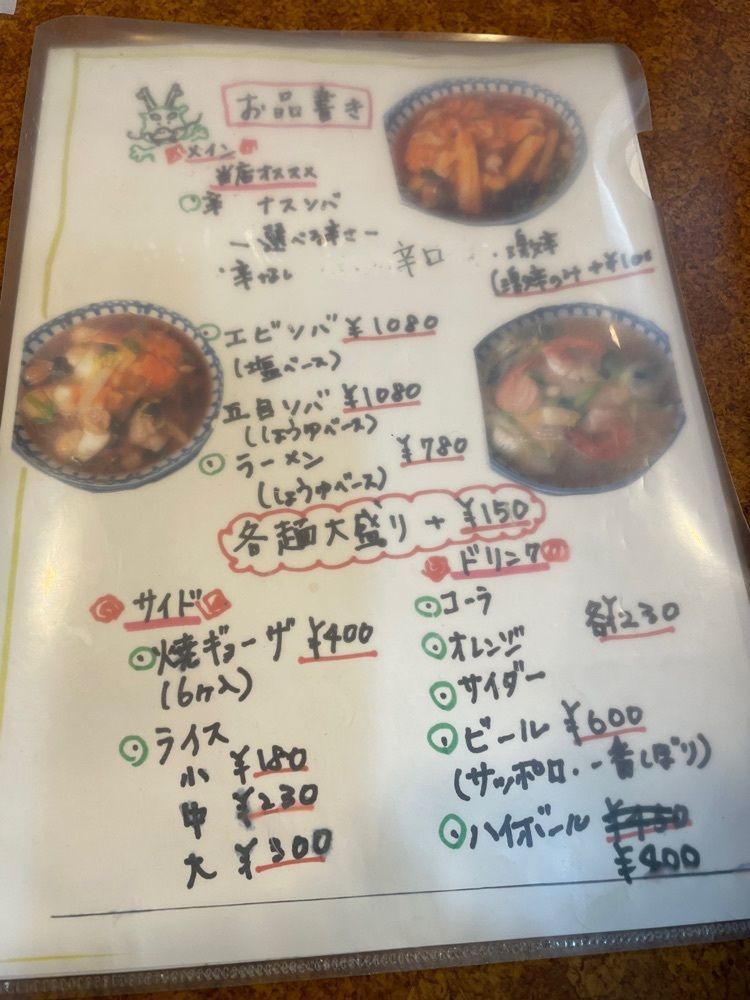 お品書き
メイン
当店オススメ
辛 ナスソバ
ー選べる辛さー
・辛なし ・・・・ 辛口 ・・激辛
(激辛のみ+¥100
エビソバ ¥1080
(塩ベース)
五目ソバ ¥1080
(しょうゆベース)
ラーメン ¥780
(しょうゆベース)
各麺大盛り + ¥150
サイド
焼ギョーザ ¥400
(6ヶ入)
ライス
小 ¥180
中 ¥230
大 ¥300
ドリンク
コーラ
各¥230
オレンジ
サイダー
ビール ¥600
(サッポロ・一番しぼり)
ハイボール ¥450
¥400